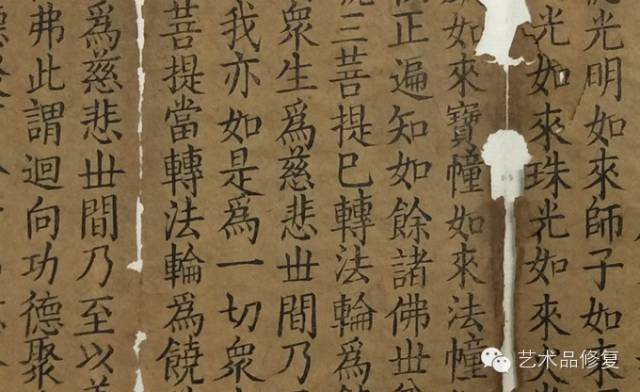 光明如來師子如來
光如來珠光如來
如來寶幢如來法幢
正遍知如餘諸佛世
三菩提已轉法輪為
眾生為慈悲世間乃
我亦如是為一切眾
菩提當轉法輪為饒
為慈悲世間乃至以
弗此謂迴向功德聚
艺术品修复